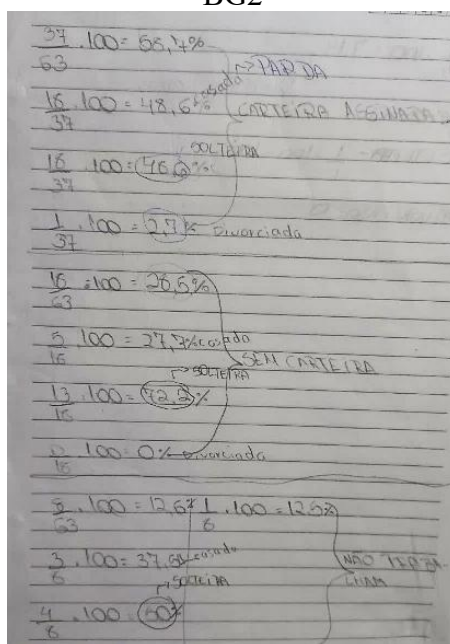 BG2
37/63 . 100 = 58,7%
→ PARDA
18/37 . 100 = 48,6% casado
CARTEIRA ASSINADA
SOLTEIRA
18/37 . 100 = 48,6%
1/37 . 100 = 2,7% Divorciada
18/63 . 100 = 28,5%
5/18 . 100 = 27,7% casado
SEM CARTEIRA
→ SOLTEIRA
13/18 . 100 = 72,2%
0/18 . 100 = 0% Divorciada
8/63 . 100 = 12,6% 1/8 . 100 = 12,5%
3/8 . 100 = 37,5% casado
NÃO TRABA-
LHAM
→ SOLTEIRA
4/8 . 100 = 50%